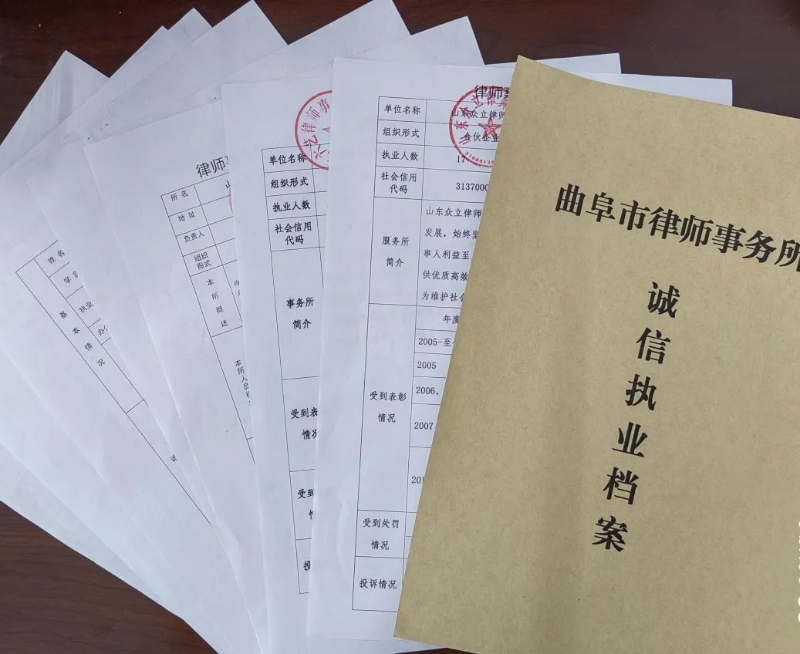 曲阜市律师事务所
诚信执业档案
律师事
单位名称
山东众立律师
组织形式
合伙企业
执业人数
17
社会信用
代码
3137000
服务所
简介
山东众立律师
发展，始终坚
事人利益至
供优质高效
为维护社会
受到表彰
情况
年度
2005-至
2005
2006、
2007
201
受到处罚
情况
投诉情况
单位名称
组织形式
执业人数
社会信用
代码
事务所
简介
受到表
情况
受到
投
律师事
所名
地址
负责人
组织
形式
本所概述
本所人员
姓名
学
执业
办
基本情况